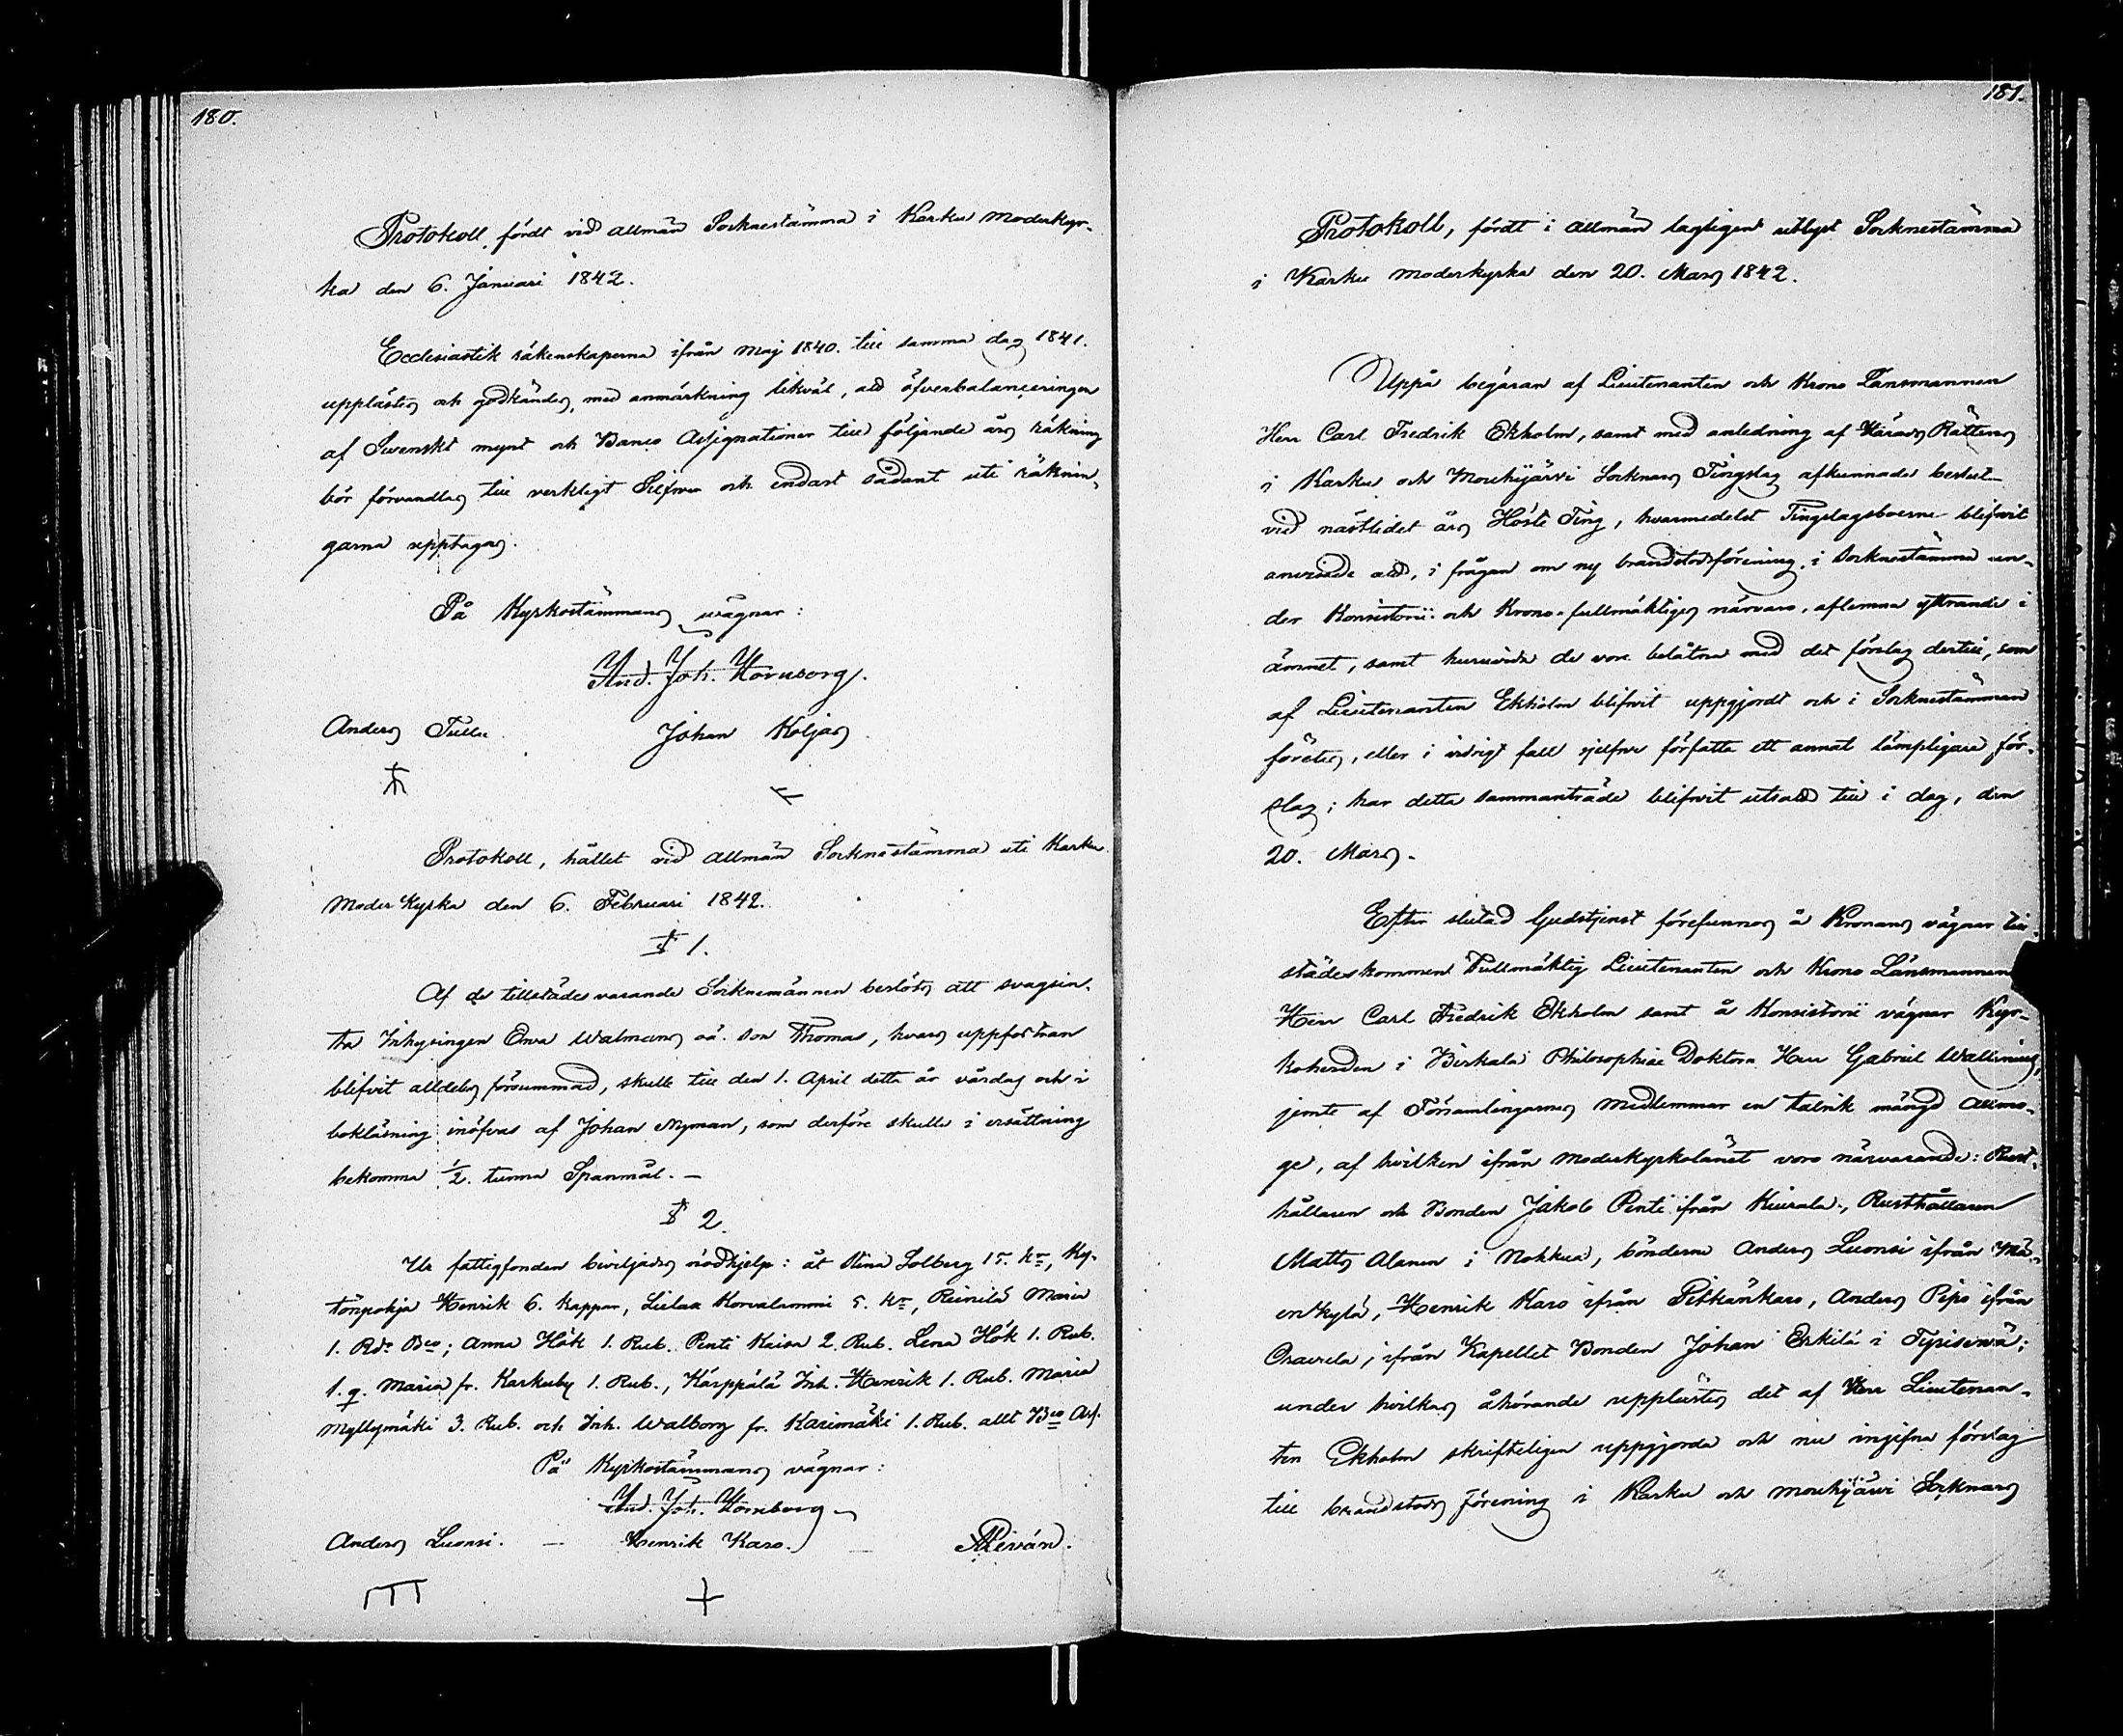 180.
Protokoll, fördt vid allmän Socknestämma i Karku moderkyr-
ka den 6. Januari 1842.
Ecclesiastik räkenskaperna ifrån Maj 1840. till samma dag 1841.
upplästes och godkändes, med anmärkning likväl, att öfverbalanceringen
af Svenskt mynt och Banco Assignationer till följande års räkning
bör förvandlas till verkligt Silfver och endast sådant uti räknin-
garna upptagas.
På Kyrkostämmans vägnar:
And. Joh. Hornborg.
Anders Tulla Johan Koljas
Protokoll, hållet vid allmän Socknestämma uti Karku
Moder Kyrka den 6. Februari 1842.
§ 1.
Af de tillstädes varande Socknemännen beslöts att svagsin-
ta Inhysingen Ewa Walmans oä. son Thomas, hvars uppfostran
blifvit alldeles försummad, skulle till den 1. April detta år vårdas och i
bokläsning inöfvas af Johan Nyman, som derföre skulle i ersättning
bekomma 1/2. tunna Spanmål. —
§ 2.
Ur fattigfonden beviljades nödhjelp: åt Stina Solberg 15. kr, Ky-
tönpohja Henrik 6. kappar, Liisa Korvalammi 5. kr, Reinilä Maria
1. Rdr Bco; Anna Hök 1. Rub. Penti Kaisa 2. Rub. Lena Hök 1. Rub.
1. q. Maria fr. Karkuby 1. Rub., Kärppälä Inh. Henrik 1. Rub. Maria
Myllymäki 3. Rub. och Inh. Walborg fr. Karimäki 1. Rub. allt Bco Ass.
På Kyrkostämmans vägnar:
And. Joh. Hornborg
Anders Luonsi. — Henrik Karo. —
181.
Protokoll, fördt i allmän lagligen utlyst Socknestämma
i Karku moderkyrka den 20. Mars 1842.
Uppå begäran af Lieutenanten och Krono Länsmannen
Herr Carl Fredrik Ekholm, samt med anledning af Härads Rättens
i Karku och Mouhijärvi Socknars Tingslag afkunnade beslut
vid nästlidet års Höste Ting, hvarmedelst Tingslagsboerne blifvit
anviste att, i frågan om ny brandstodsförening, i Socknestämma un-
der Konsistorii- och Krono-fullmäktiges närvaro, aflemna yttrande i
ämnet, samt huruvida de vore belåtne med det förslag dertill, som
af Lieutenanten Ekholm blifvit uppgjordt och i Socknestämman
företes, eller i vidrigt fall sjelfve författa ett annat lämpligare för-
slag; har detta sammanträde blifvit utsatt till i dag, den
20. Mars.
Efter slutad Gudstjenst förefunnos å Kronans vägnar till-
städeskommen Fullmäktig Lieutenanten och Krono Länsmannen
Herr Carl Fredrik Ekholm samt å Konsistorii vägnar Kyr-
koherden i Birkala Philosophiae Doktorn Herr Gabriel Wallenius,
jemte af Församlingarnes Medlemmar en talrik mängd Allmo-
ge, af hvilken ifrån Moderkyrkolänet voro närvarande: Rust-
hållaren och Bonden Jakob Penti ifrån Kiurala, Rusthållaren
Matts Alanen i Nokkua, bönderne Anders Luonsi ifrån Mä-
enkylä, Henrik Karo ifrån Pitkänkaro, Anders Pipo ifrån
ifrån Kapellet Bonden Johan Erkilä i Tyrisevä;
under hvilkas åhörande upplästes det af Herr Lieutenan-
ten Ekholm skrifteligen uppgjorda och nu ingifna förslag
till brandstods förening i Karku och Mouhijärvi Socknars